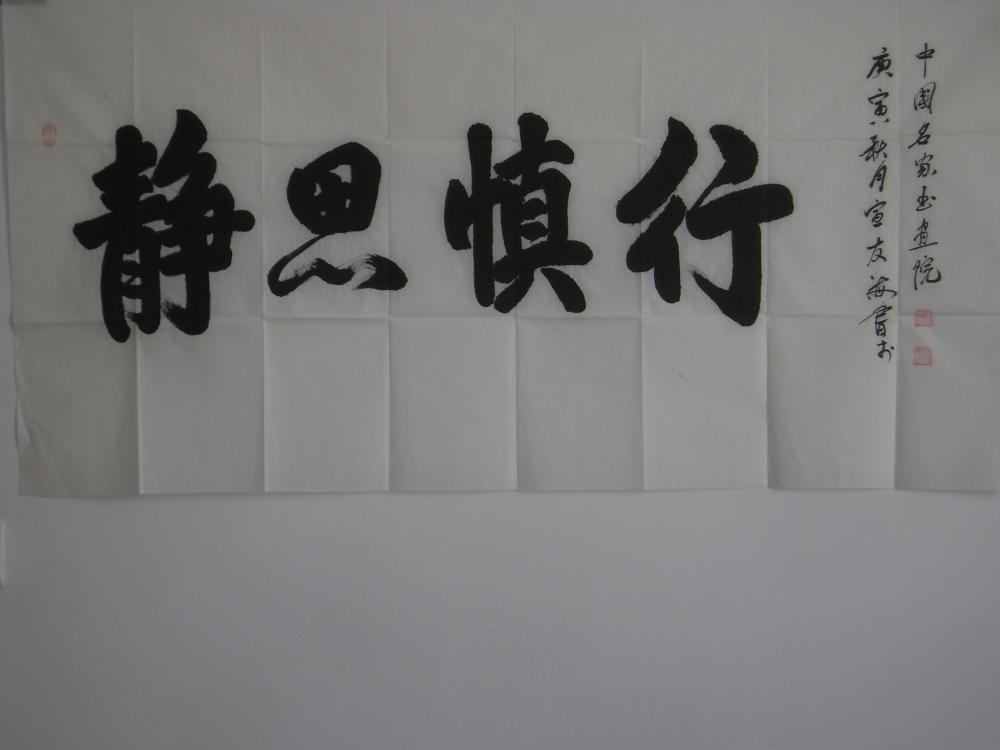 静思慎行
中國名家书画院
庚寅秋月宣友